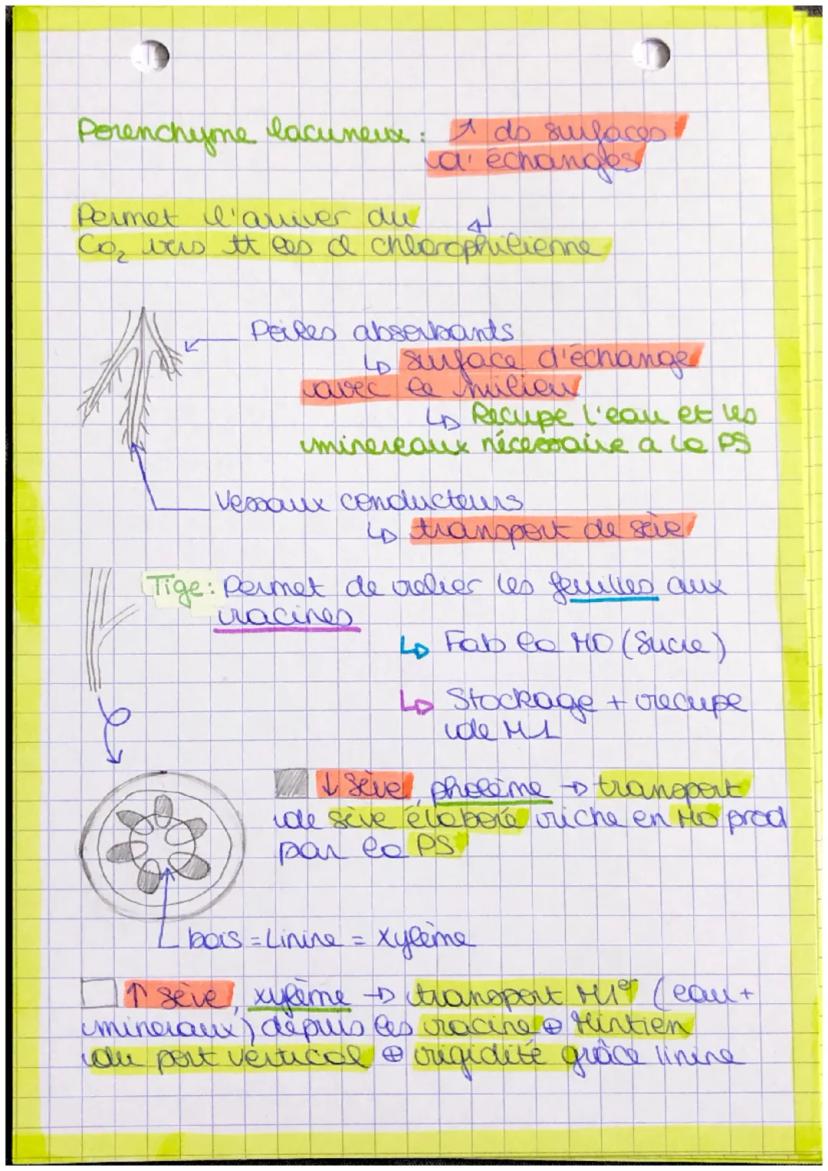 Parenchyme lacuneux : ↑ ds surfaces
d'échanges
Permet l'arriver du
CO₂ vers tt les ¢ chlorophilienne
Poiles absorbants
↳ surface d'échange
avec le milieu
↳ Récupe l'eau et les
minereaux nécessaire a la PS
Vessaux conducteurs
↳ transport de sève
Tige : Permet de relier les feuilles aux
racines
↳ Fab la MO (Sucre)
↳ Stockage + recupe
de MI
↓ sève, phloème → transport
de sève élaboré riche en MO prod
par la PS
bois = Linine = xylème
↑ sève, xylème → transport MIe (eau +
mineraux) depuis les racine ⊕ Mintien
du port vertical ⊕ rigidité grâce linine